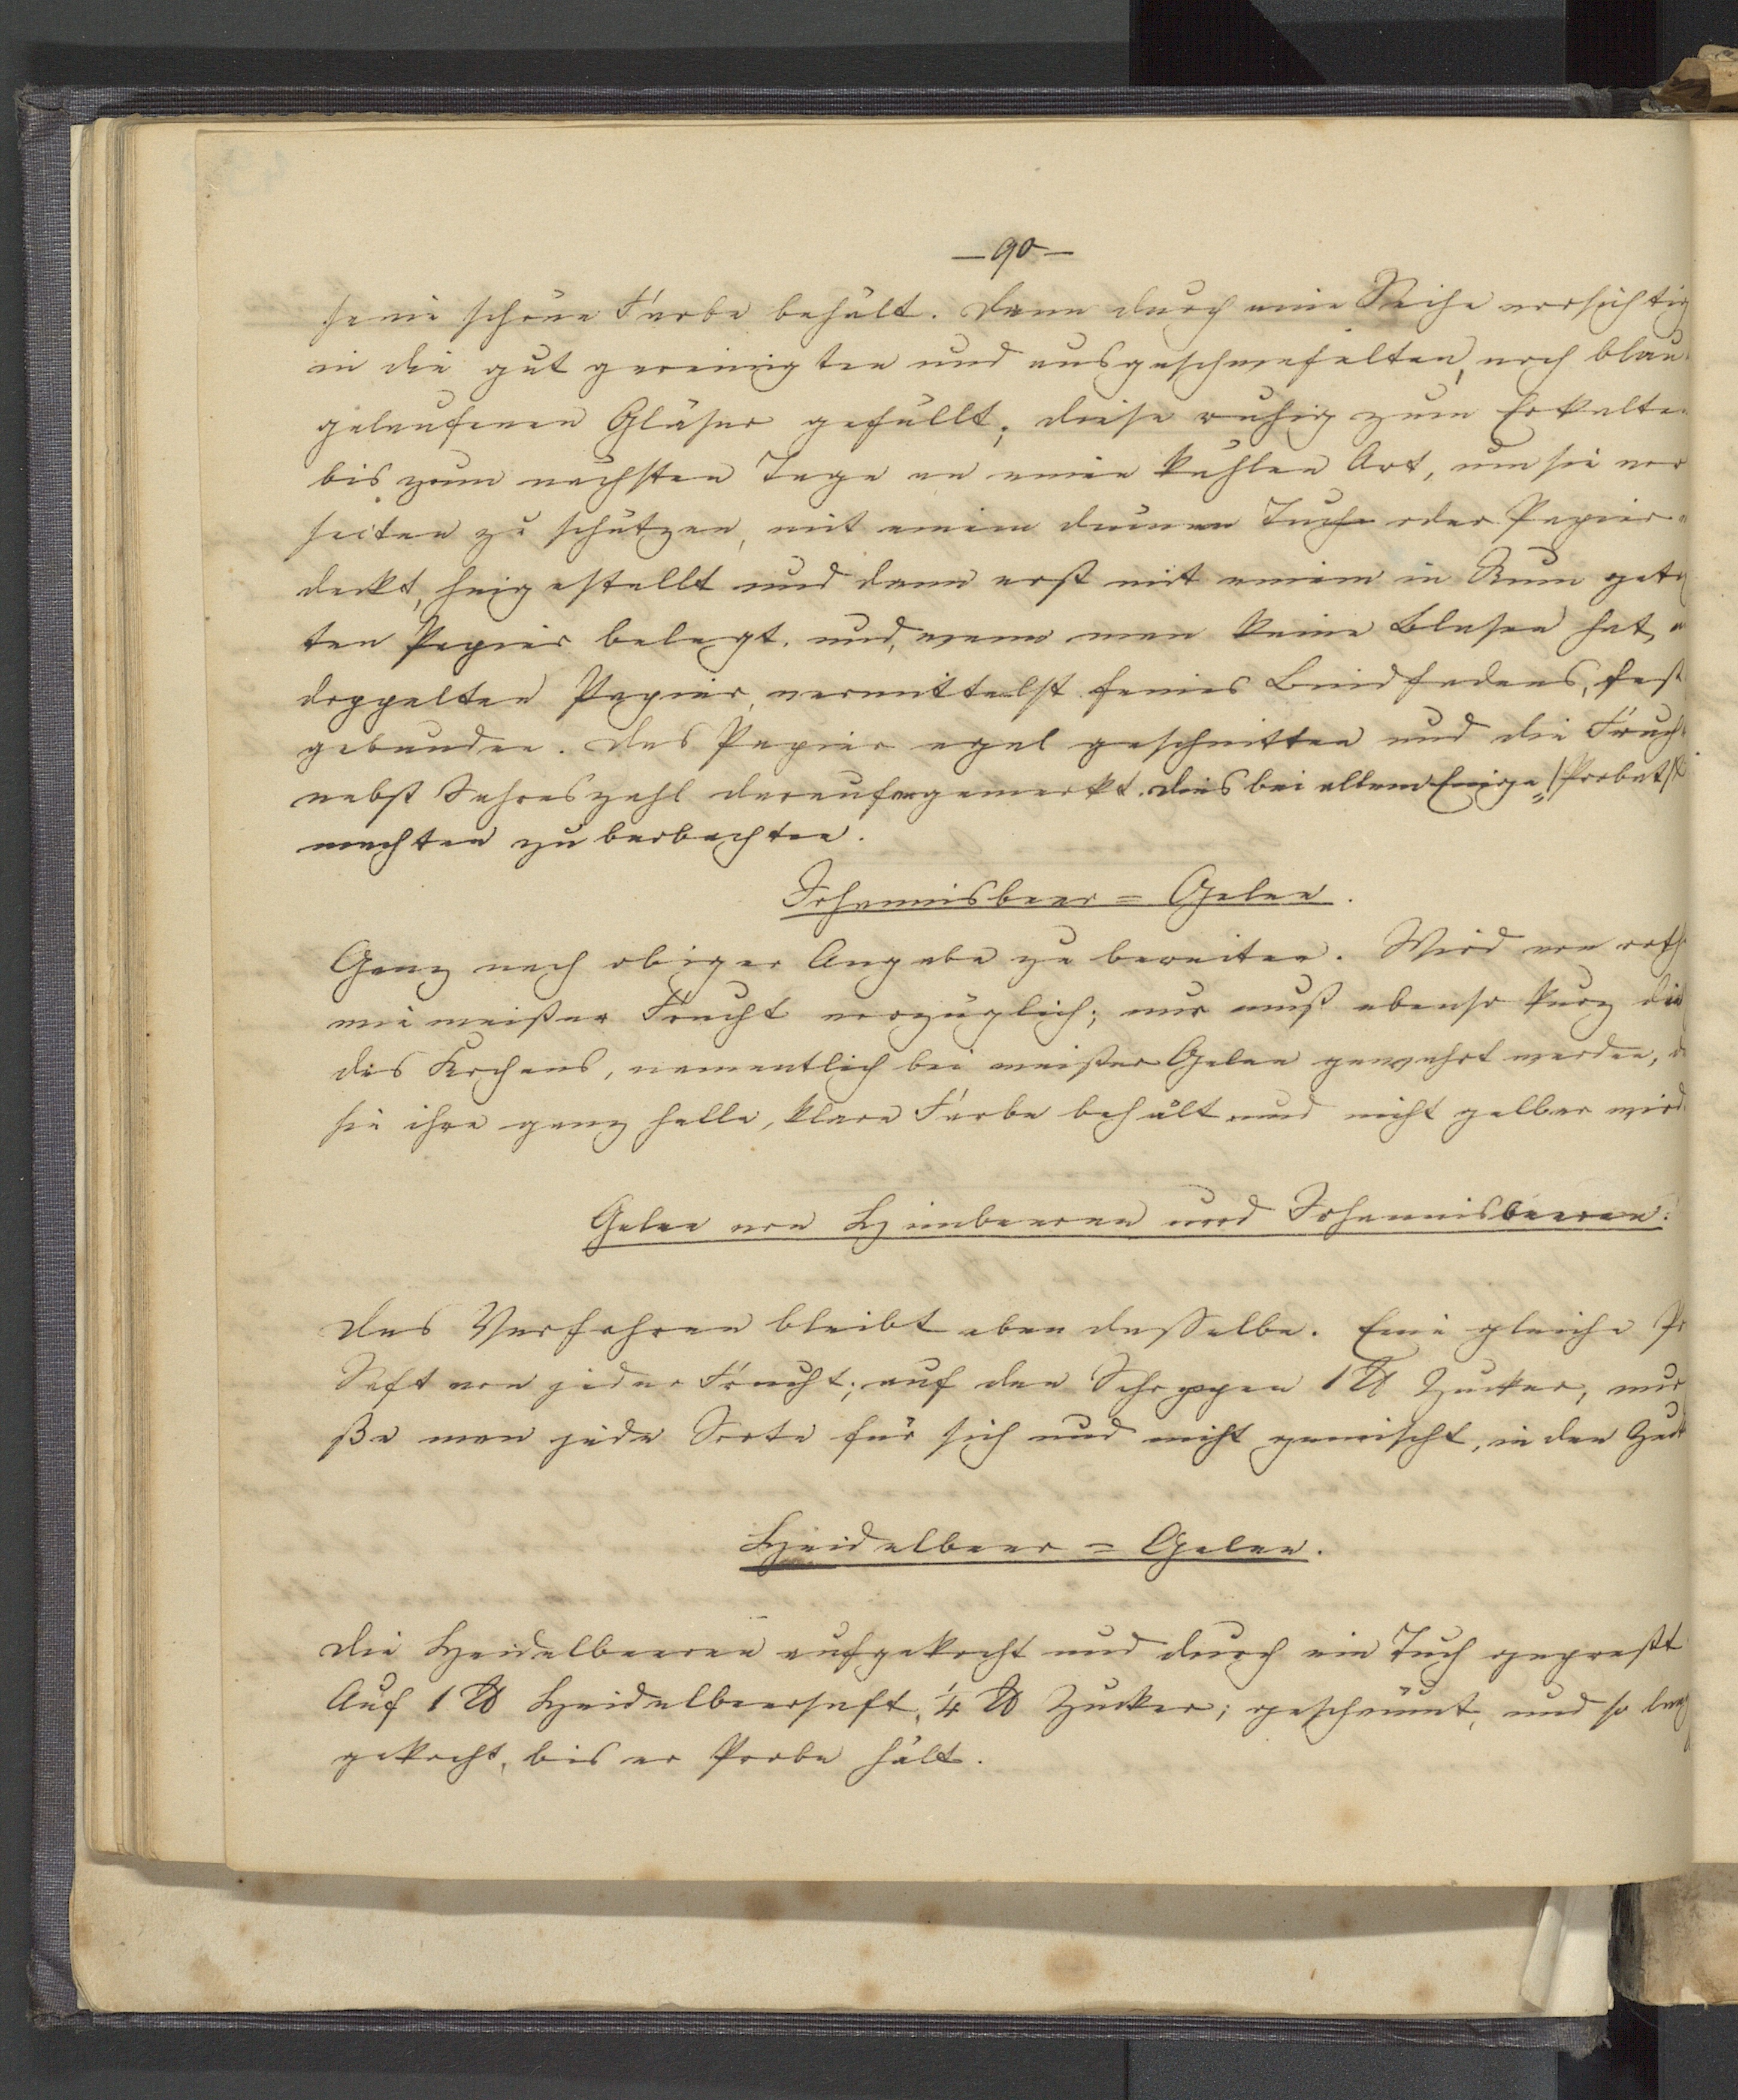 —90—
seine schöne Farbe behält. Dann durch eine Seihe vorsichtig
in die gut gereinigten und ausgeschwefelten, noch blau
gelaufenen Gläser gefüllt; diese ruhig zum Erkalten
bis zum nächsten Tage an einen kühlen Ort, um sie vor
zu schützen, mit einem dünnen Tuche oder Papier
deckt, hingestellt und dann erst mit einem in Rum
ten Papier belegt. und, wenn man keine Blasen hat,
doppelten Papier, vermittelst feines Bindfadens, fest
gebunden. Das Papier egal geschnitten und die
nebst Jahreszahl daraufgemerkt. Dies bei allem /Probat/
machten zu beobachten.
Johannisbeer=Gelee.
Ganz nach obiger Angabe zu bereiten. Wird von
wie weißer Frucht vorzüglich; nur muß ebenso kurz die
des Kochens, namentlich bei weißer Gelee gewahrt werden,
sie ihre ganz helle, klare Farbe behält und nicht gelber wird.
Gelee von Himbeeren und Johannisbeeren.
Das Verfahren bleibt eben dasselbe. Eine gleiche
Saft von jeder Frucht; auf den Schoppen 1 ℔ Zucker, nur
ße man jede Sorte für sich und nicht gemischt, in den
Heidelbeer=Gelee.
Die Heidelbeeren aufgekocht und durch ein Tuch gepreßt
Auf 1 ℔ Heidelbeersaft, ¼ ℔ Zucker; geschäumt, und so lang
gekocht, bis er Probe hält.